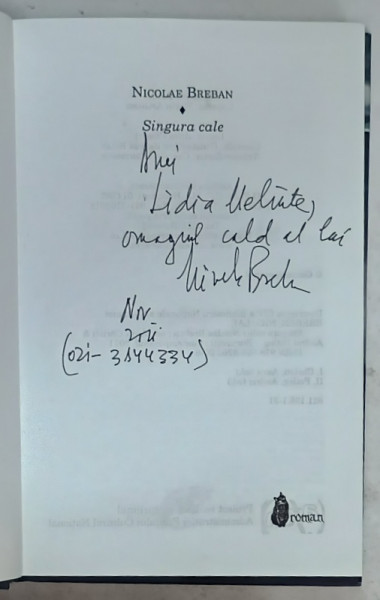 NICOLAE BREBAN
♦
Singura cale
Lidia
omagiul cald al lui
Nicolae Breban
Nov
2011
(021-3144334)
roman